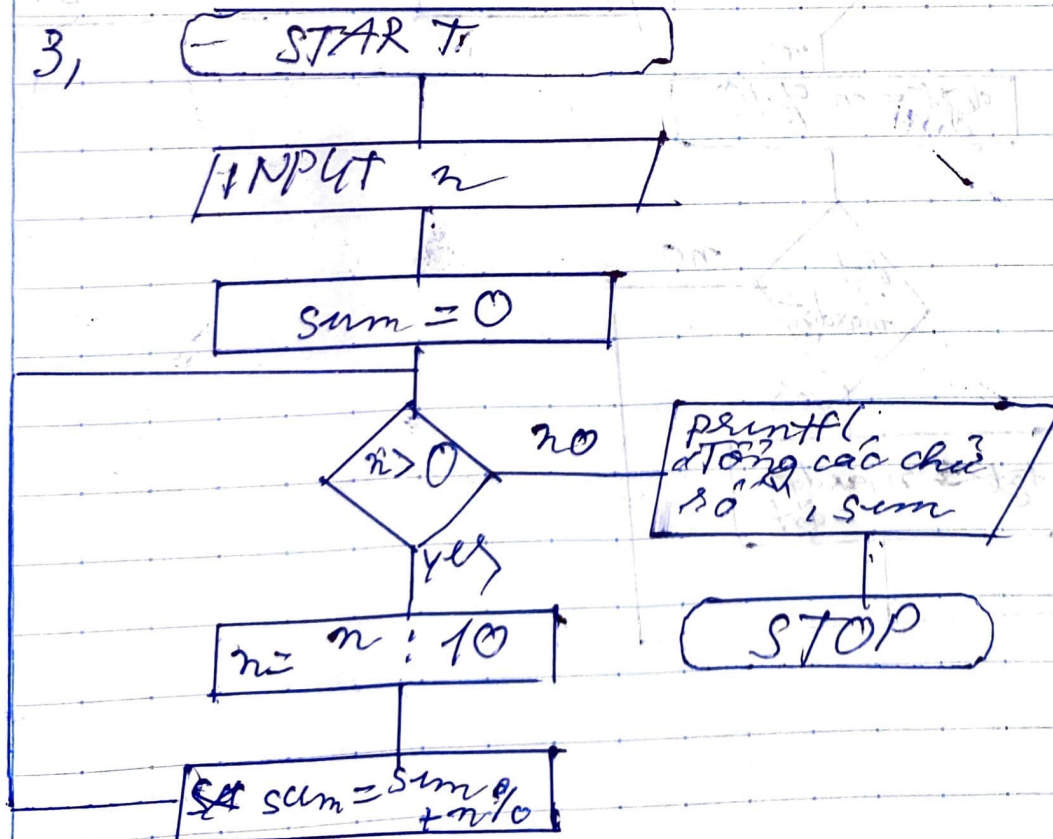 3,
START
INPUT n
sum = 0
n > 0
no
printf(
"Tổng các chữ
số", sum
yes
STOP
n = n : 10
sum = sum
+ n%